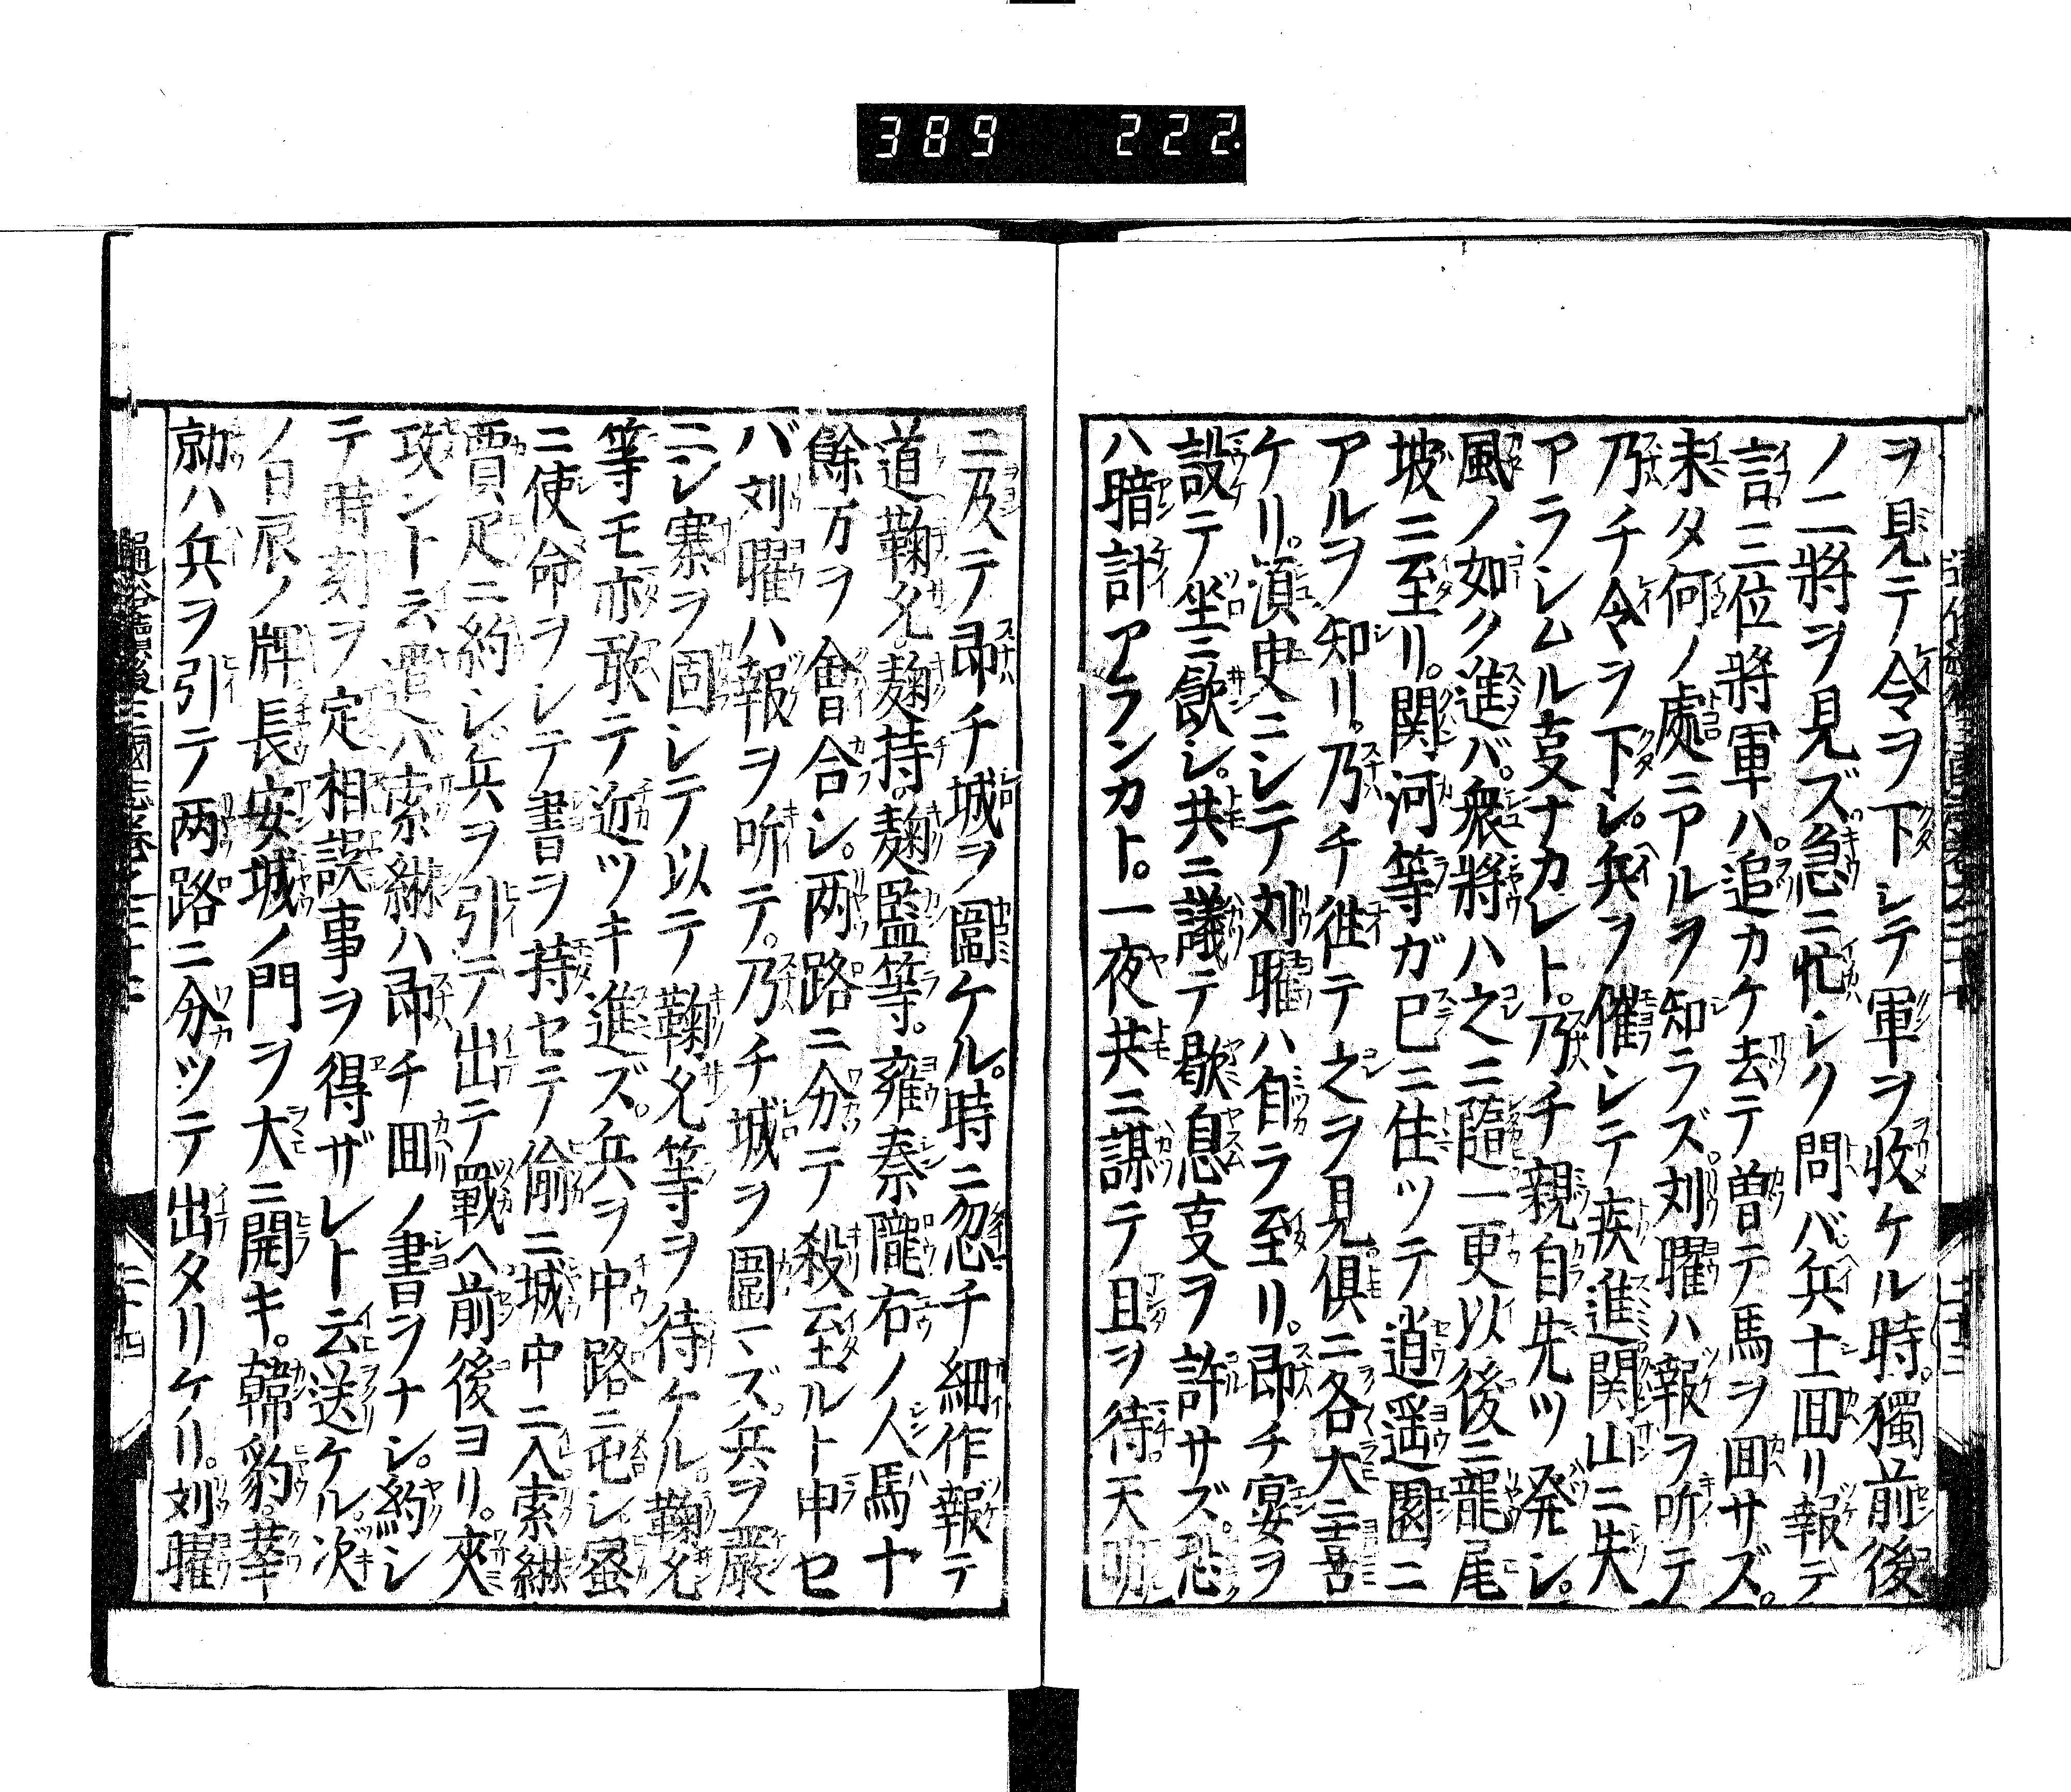 389 222.
ヲ見テ令ヲ下シテ軍ヲ收ケル時。獨前後
ノ二將ヲ見ズ。急ニ忙シク問バ。兵士回リ報テ
言三位將軍ハ。追カケ去テ曽テ馬ヲ回サズ。
未タ何ノ處ニアルヲ知ラズ。刘曜ハ報ヲ听テ
乃チ令ヲ下シ。兵ヲ催シテ疾進関山ニ失
アラシムル叓ナカレト。乃チ親自先ツ発シ。
風ノ如ク進バ。衆將ハ之ニ隨一更以後ニ龍尾
坡ニ至リ。関河等ガ已ニ住ツテ逍遥園ニ
アルヲ知リ。乃チ徃テ之ヲ見俱ニ各大ニ喜
ケリ。湏臾ニシテ刘曜ハ自ラ至リ。即チ宴ヲ
設テ坐ニ飲シ。共ニ議テ歇息叓ヲ許サズ。恐
ハ暗計アランカト。一夜共ニ謀テ且ヲ待天明
ニ及テ即チ城ヲ圍ケル。時ニ忽チ細作報テ
道鞠允。麹持。麹監等。雍秦隴右ノ人馬十
餘万ヲ會合シ。两路ニ分テ殺至ルト申セ
バ刘曜ハ報ヲ听テ。乃チ城ヲ圍マズ。兵ヲ嚴
ニシ寨ヲ固シテ以テ鞠允等ヲ待ケル。鞠允
等モ亦敢テ近ツキ進ズ。兵ヲ中路ニ屯シ蜜
ニ使命ヲシテ書ヲ持セテ偷ニ城中ニ入索綝
賈疋ニ約シ。兵ヲ引テ出テ戰ヘ前後ヨリ。夾
攻ント云遣バ索綝ハ即チ回ノ書ヲナシ。約シ
テ時刻ヲ定相誤事ヲ得ザレト云送ケル。次
ノ日辰ノ牌長安城ノ門ヲ大ニ開キ。韓豹。華
勍ハ兵ヲ引テ两路ニ分ツテ出タリケリ。刘曜
二十四